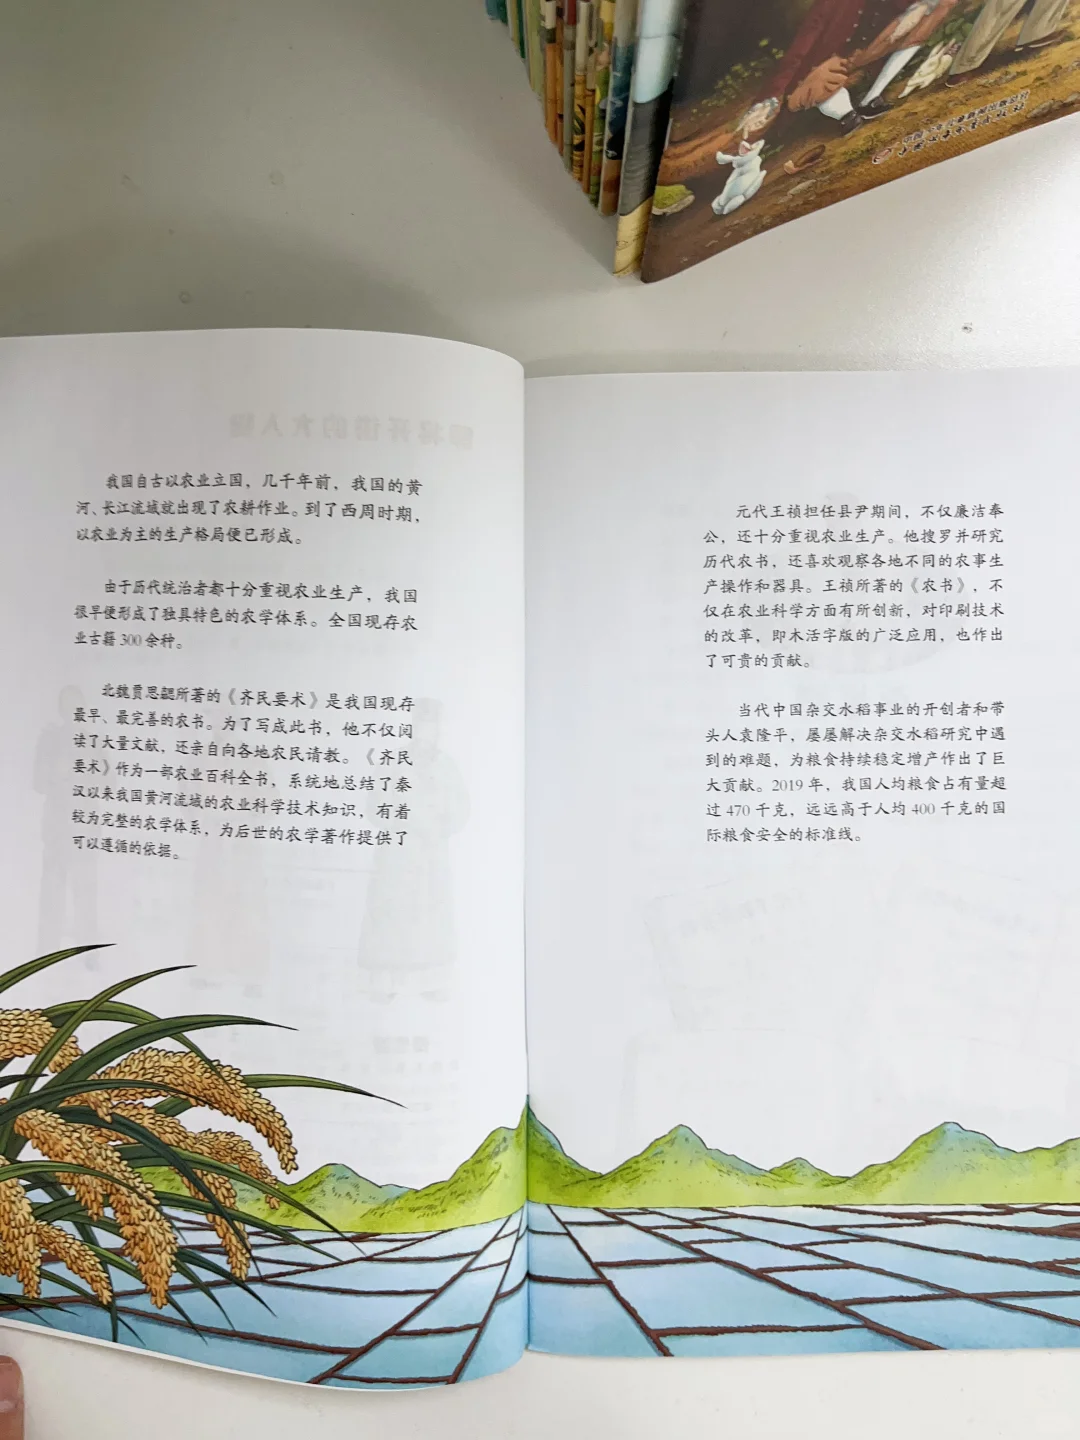 我国自古以农业立国，几千年前，我国的黄
河、长江流域就出现了农耕作业。到了西周时期，
以农业为主的生产格局便已形成。
由于历代统治者都十分重视农业生产，我国
很早便形成了独具特色的农学体系。全国现存农
业古籍300余种。
北魏贾思勰所著的《齐民要术》是我国现存
最早、最完善的农书。为了写成此书，他不仅阅
读了大量文献，还亲自向各地农民请教。《齐民
要术》作为一部农业百科全书，系统地总结了秦
汉以来我国黄河流域的农业科学技术知识，有着
较为完整的农学体系，为后世的农学著作提供了
可以遵循的依据。
元代王祯担任县尹期间，不仅廉洁奉
公，还十分重视农业生产。他搜罗并研究
历代农书，还喜欢观察各地不同的农事生
产操作和器具。王祯所著的《农书》，不
仅在农业科学方面有所创新，对印刷技术
的改革，即木活字版的广泛应用，也作出
了可贵的贡献。
当代中国杂交水稻事业的开创者和带
头人袁隆平，屡屡解决杂交水稻研究中遇
到的难题，为粮食持续稳定增产作出了巨
大贡献。2019年，我国人均粮食占有量超
过470千克，远远高于人均400千克的国
际粮食安全的标准线。